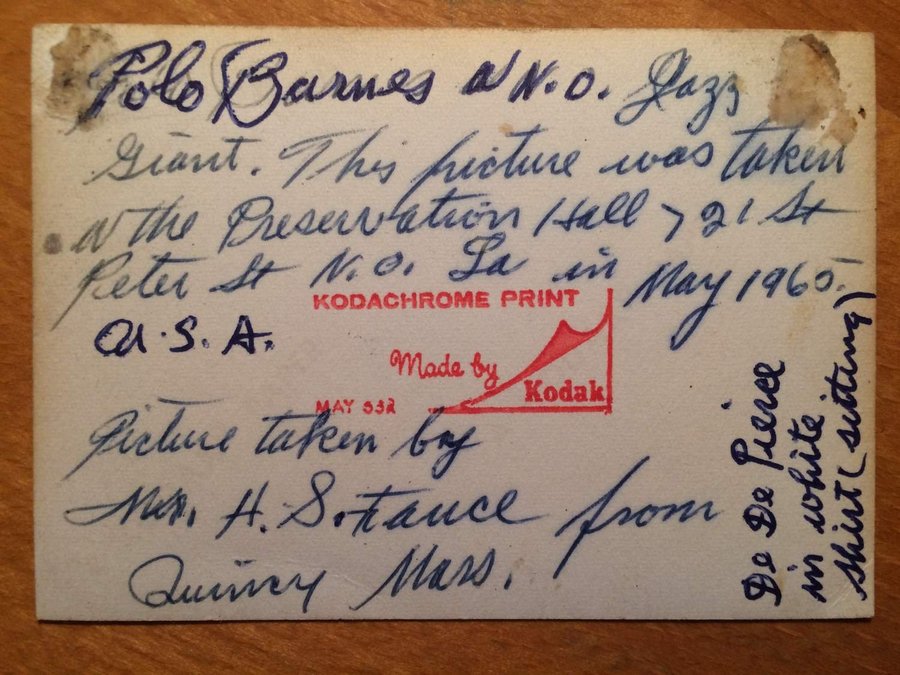 Polo Barnes a N.O. Jazz
Giant. This picture was taken
at the Preservation Hall 721 St
Peter St N.O. La in May 1965.
U.S.A.
KODACHROME PRINT
Made by
Kodak
MAY
Picture taken by
Mr. H. S. from
Quincy Mass.
De De Pierce
in white
shirt (sitting)